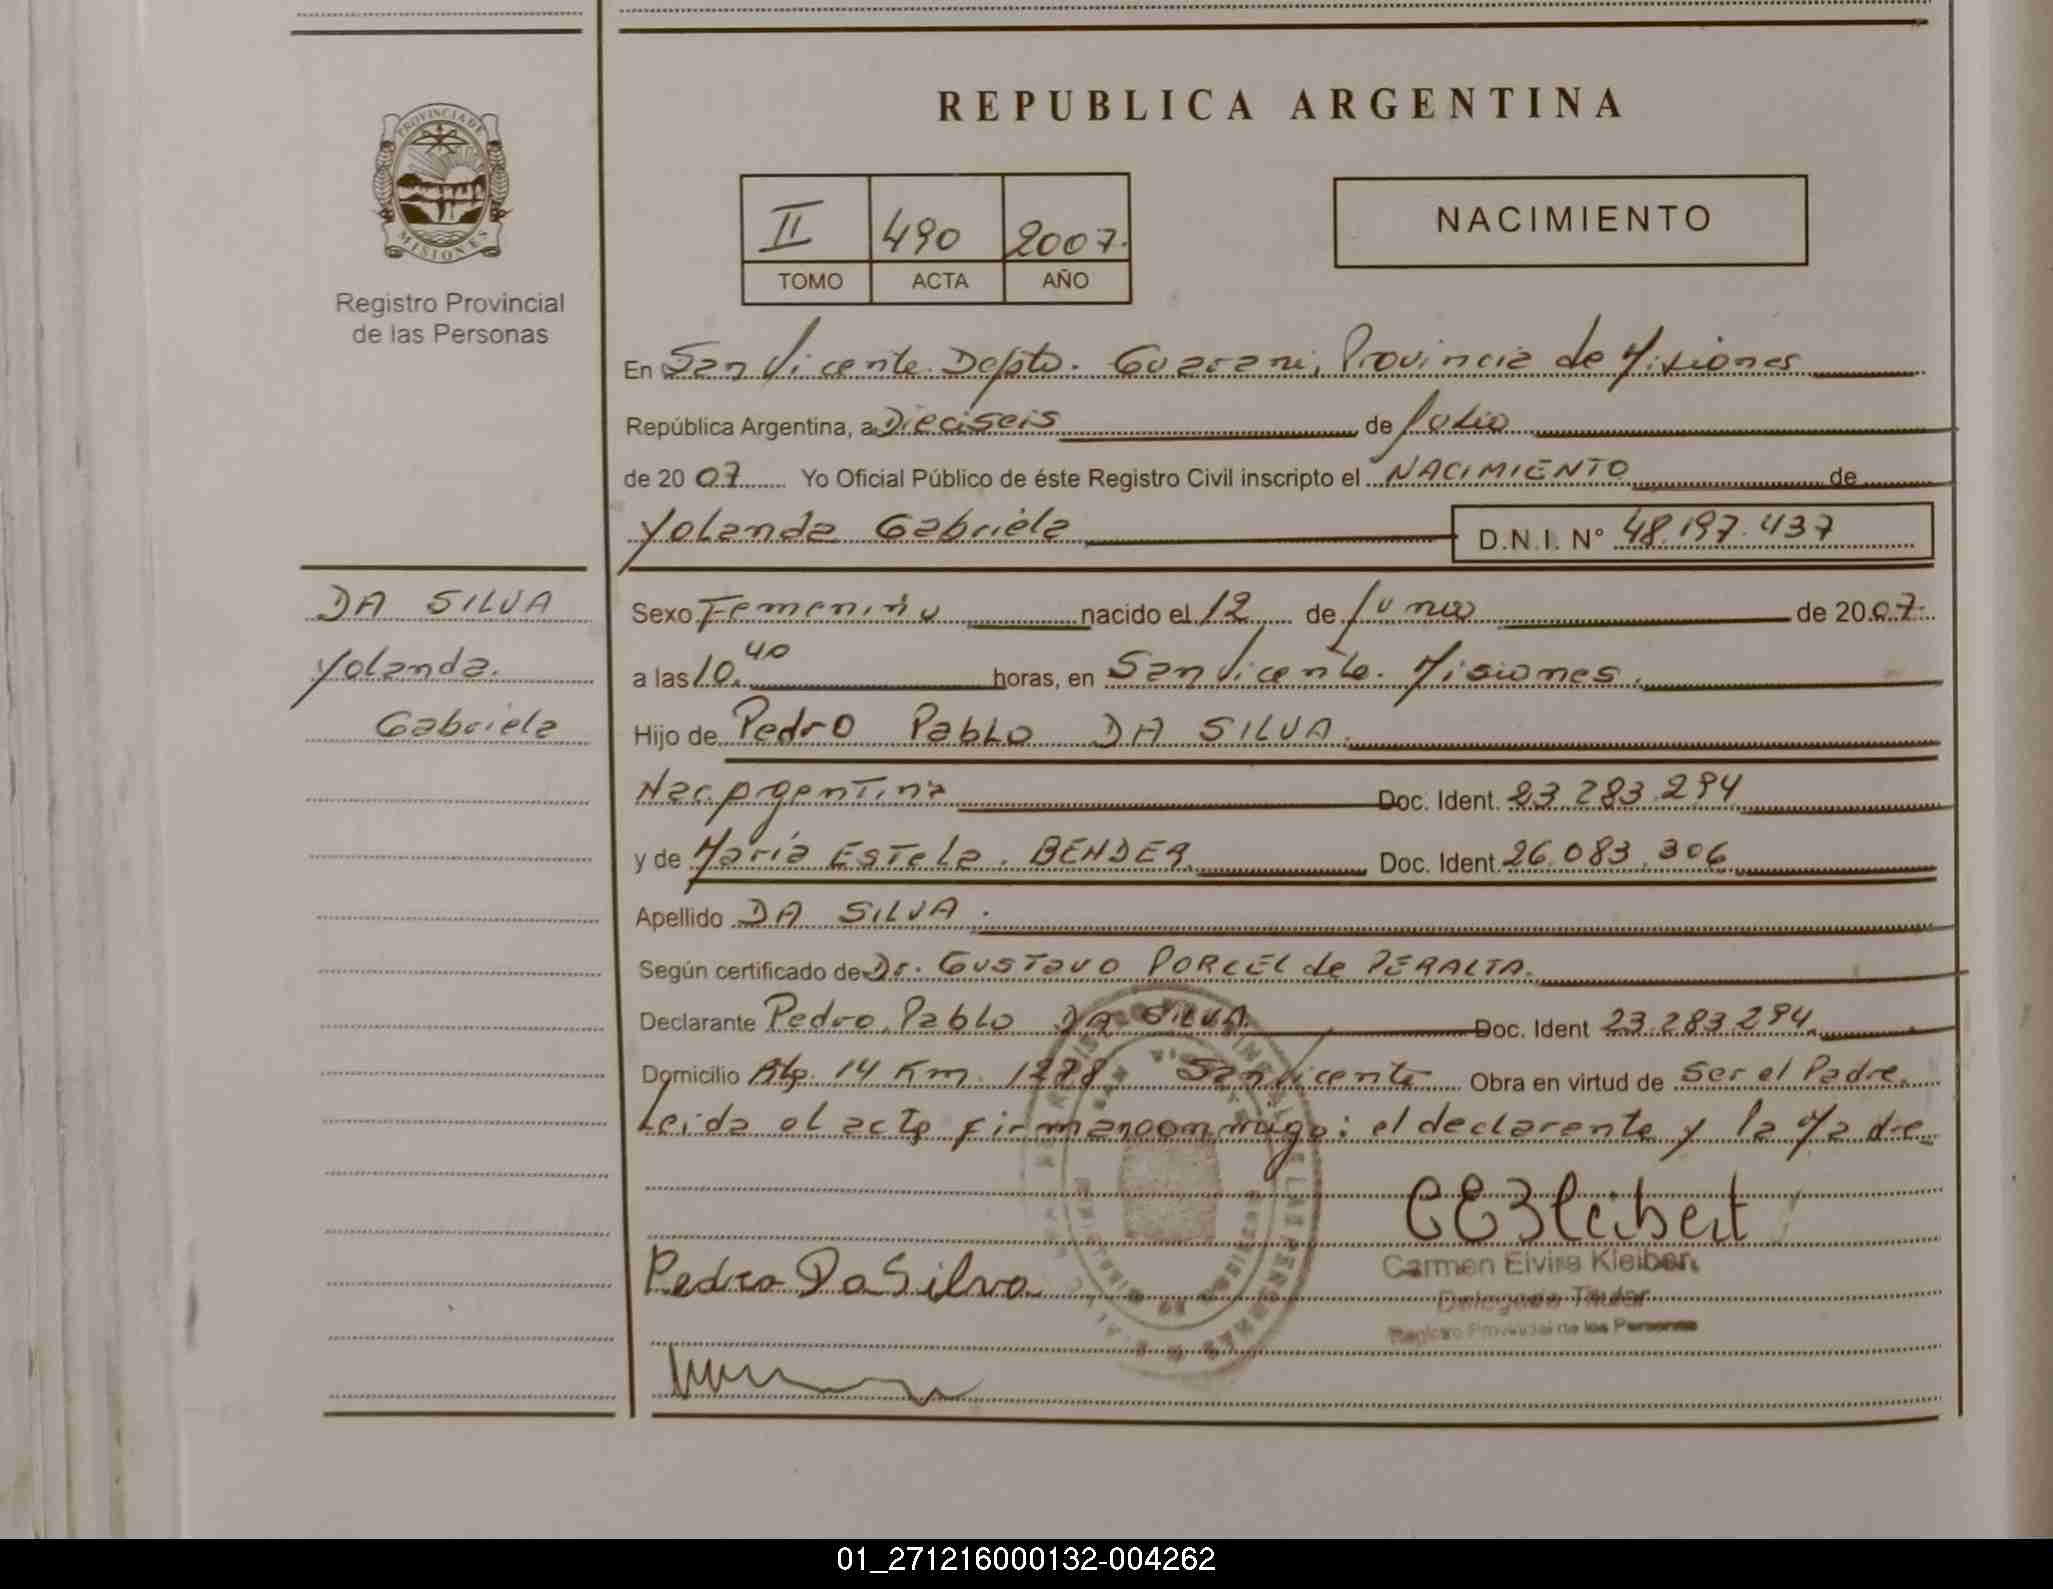 PROVINCIA DE
MISIONES
Registro Provincial
de las Personas
REPUBLICA ARGENTINA
II 490 2007.
TOMO ACTA AÑO
NACIMIENTO
En San Vicente. Depto. Guarani, Provincia de Misiones
República Argentina, a Dieciseis de Julio
de 2007 Yo Oficial Público de éste Registro Civil inscripto el NACIMIENTO de
Yolanda Gabriela D.N.I. N° 48.197.437
DA SILVA
Yolanda.
Gabriela
Sexo Femenino nacido el 12 de Junio de 2007.
a las 10.40 horas, en San Vicente. Misiones.
Hijo de Pedro Pablo DA SILVA.
Nac. Argentina Doc. Ident. 23.283.294
y de María Estela. BENDER. Doc. Ident. 26.083.306
Apellido DA SILVA.
Según certificado de Dr. GUSTAVO PORCEL de PERALTA.
Declarante Pedro Pablo DA SILVA. Doc. Ident 23.283.294
Domicilio Km. San Vicente Obra en virtud de Ser el Padre.
Leida el acta firman conmigo: el declarante y la Madre
Pedro Da Silva
Carmen Elvira Kleibert
Delegada Titular
Registro Provincial de las Personas
01_271216000132-004262